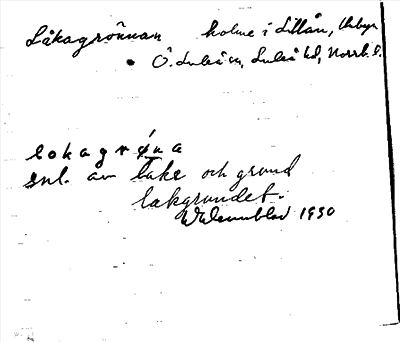 Låkagrönnan holme i Lillån, Unbyn
Ö. Luleå sn, Luleå hd, Norrb. l.
lokagrǿna
enl. av lake och grund
lakgrundet.
Wulennblad 1930